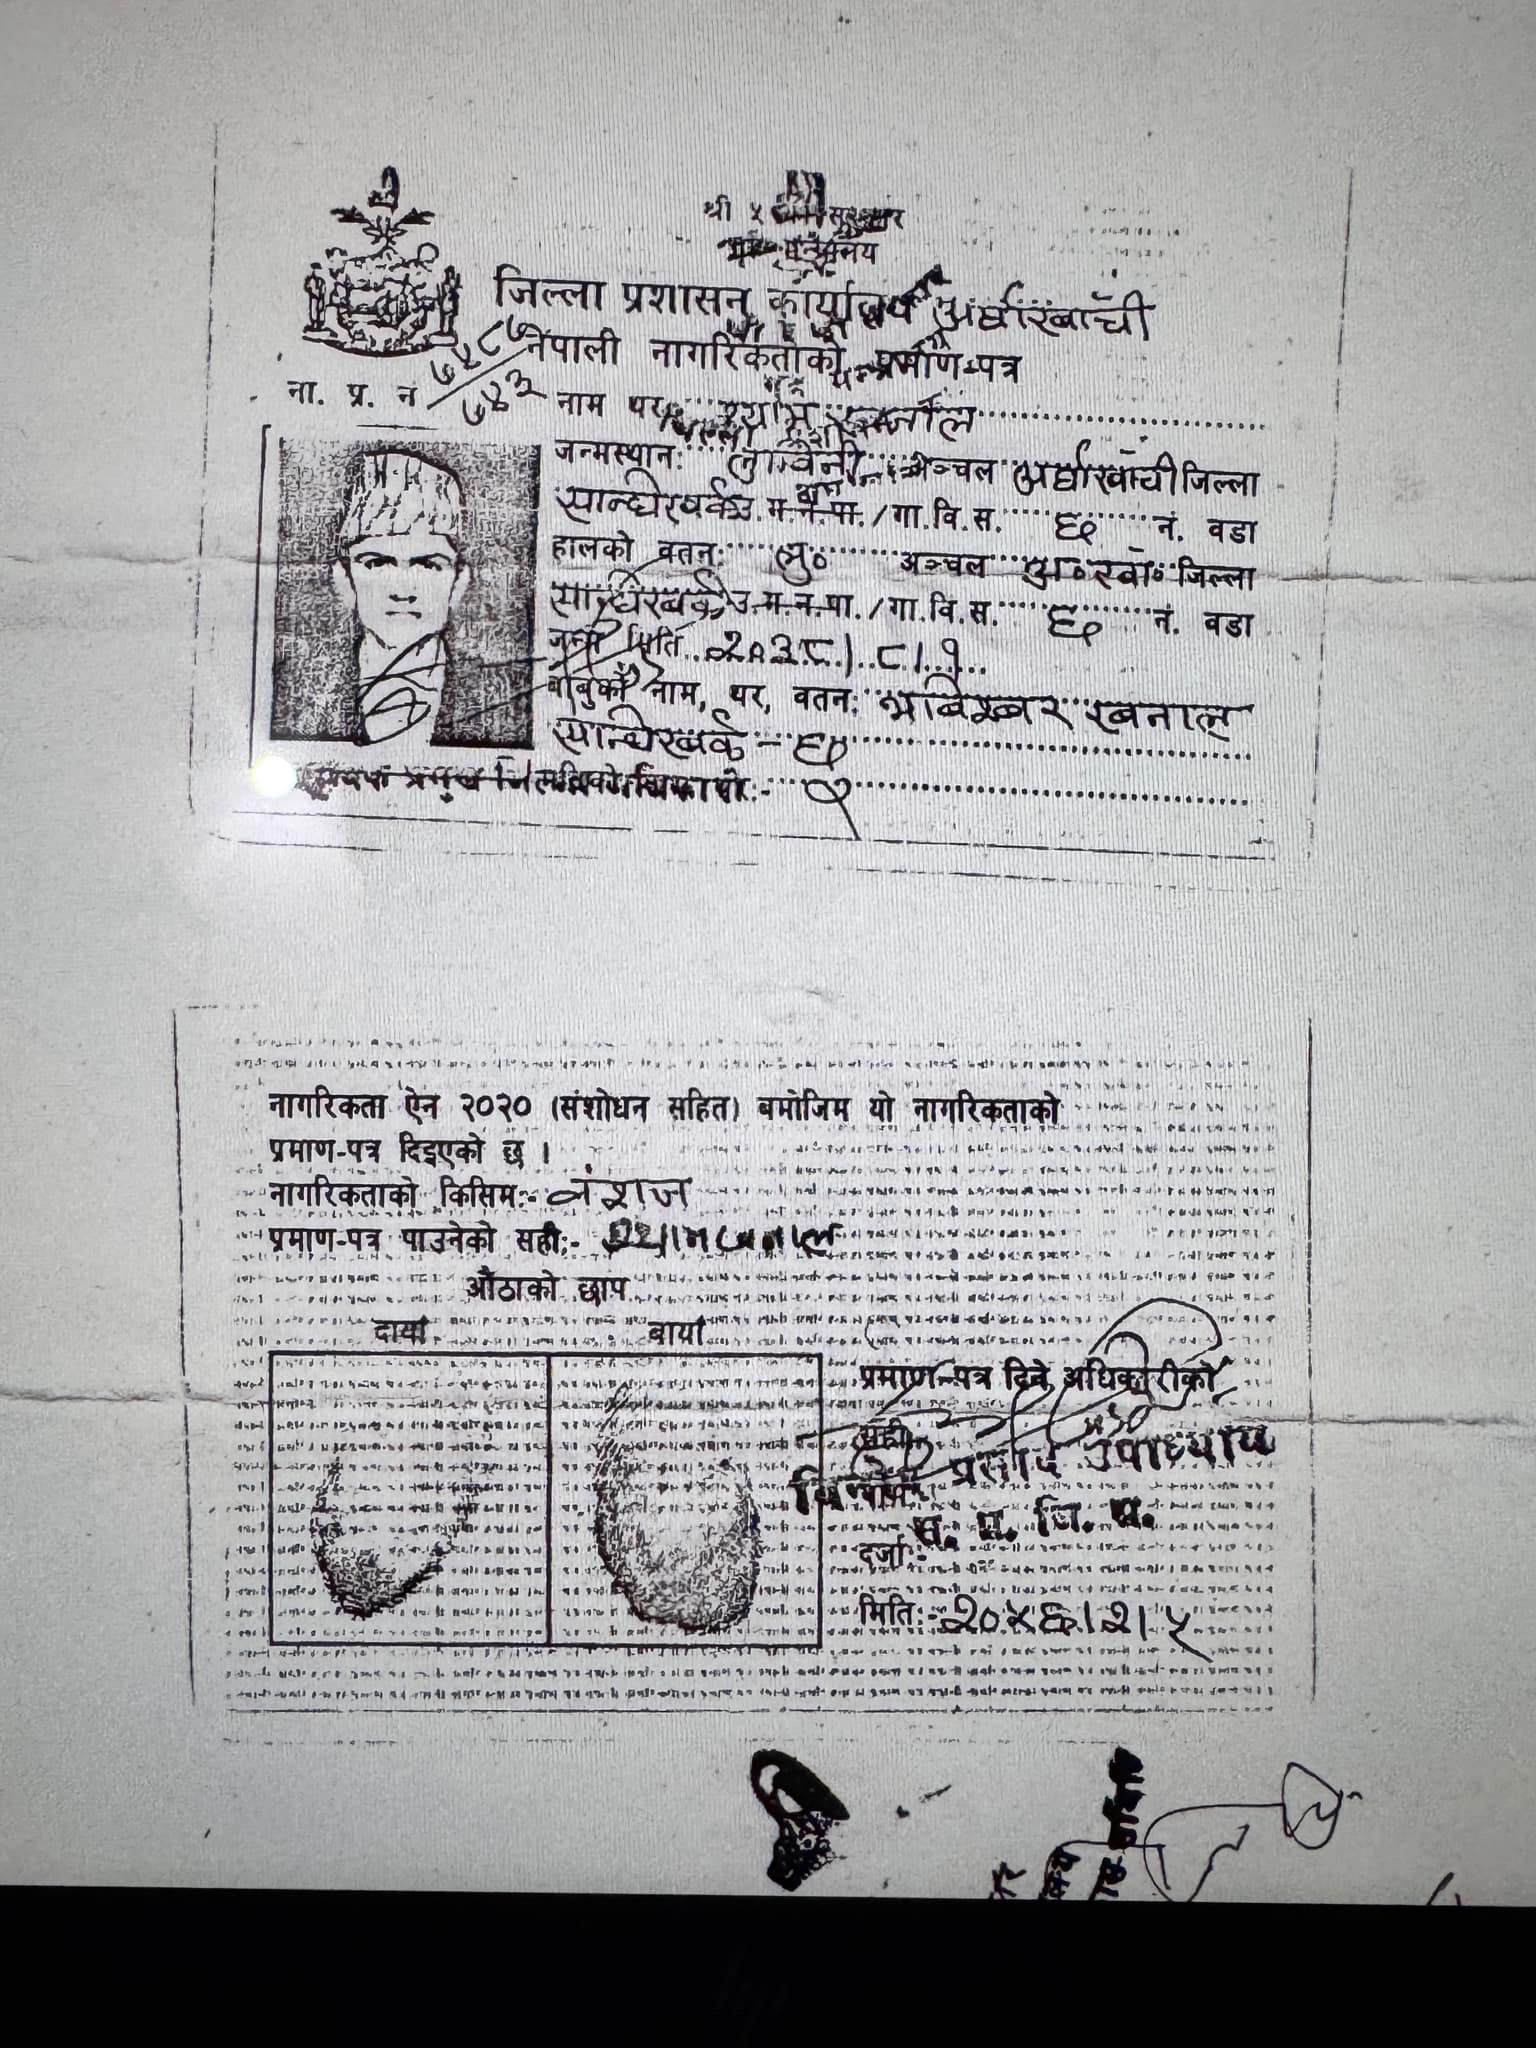 श्री ५ को सरकार
गृह मन्त्रालय
जिल्ला प्रशासन कार्यालय अर्घाखाँची
नेपाली नागरिकताको प्रमाण-पत्र
ना. प्र. नं
नाम थर: श्याम खनाल
जन्मस्थान: लुम्बिनी अञ्चल अर्घाखाँची जिल्ला
सान्धिखर्क उ.म.न.पा./गा.वि.स. ६ नं. वडा
हालको वतन: लु० अञ्चल अ० खाँ० जिल्ला
सान्धिखर्क उ.म.न.पा./गा.वि.स. ६ नं. वडा
जन्म मिति २०३८।८।१
बाबुको नाम, थर, वतन: खनाल
सान्धिखर्क - ६
नागरिकता ऐन २०२० (संशोधन सहित) बमोजिम यो नागरिकताको
प्रमाण-पत्र दिइएको छ ।
नागरिकताको किसिम:- वंशज
प्रमाण-पत्र पाउनेको सही:- श्याम खनाल
औंठाको छाप
दायाँ बायाँ
प्रमाण-पत्र दिने अधिकारीको
सही
प्रसाद उपाध्याय
दर्जा:-
मिति:- २०५६।२।५